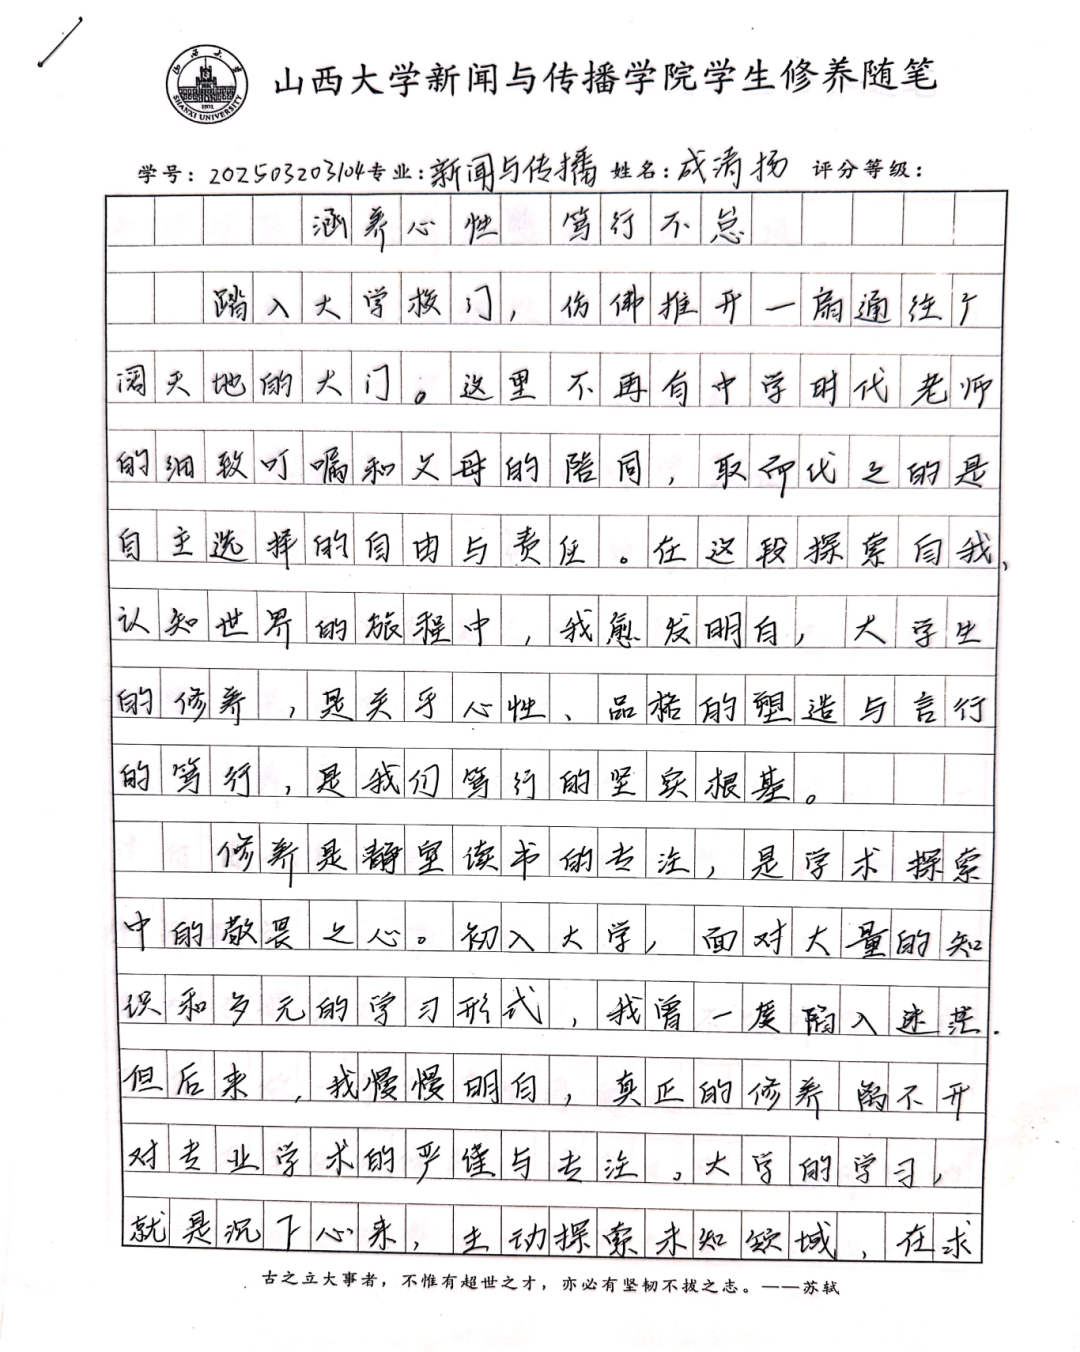 山西大学
SHANXI UNIVERSITY
1902
山西大学新闻与传播学院学生修养随笔
学号:202503203104 专业:新闻与传播 姓名:成清扬 评分等级:
涵养心性 笃行不怠
踏入大学校门,仿佛推开一扇通往广
阔天地的大门。这里不再有中学时代老师
的细致叮嘱和父母的陪同,取而代之的是
自主选择的自由与责任。在这段探索自我、
认知世界的旅程中,我愈发明白,大学生
的修养,是关乎心性、品格的塑造与言行
的笃行,是我们笃行的坚实根基。
修养是静室读书的专注,是学术探索
中的敬畏之心。初入大学,面对大量的知
识和多元的学习形式,我曾一度陷入迷茫.
但后来,我慢慢明白,真正的修养离不开
对专业学术的严谨与专注。大学的学习,
就是沉下心来,主动探索未知领域,在求
古之立大事者,不惟有超世之才,亦必有坚韧不拔之志。——苏轼